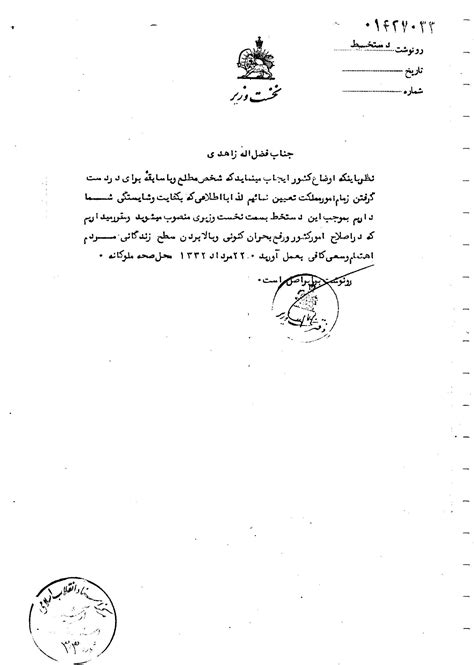 ۰۱۴۲۷۰۳۳
رونوشت دستخط
تاریخ
شماره
نخست وزیر
جناب فضل اله زاهدی
نظرباینکه اوضاع کشور ایجاب مینماید که شخص مطلع وبا سابقهٔ برای در دست
گرفتن زمام امور مملکت تعیین نمائیم لذا با اطلاعی که بکفایت و شایستگی شما
داریم بموجب این دستخط بسمت نخست وزیری منصوب میشوید و مقرر میداریم
که در اصلاح امور کشور و رفع بحران کنونی و بالا بردن سطح زندگانی مردم
اهتمام وسعی کافی بعمل آورید ۰ ۲۲ مرداد ۱۳۳۲ محل صحه ملوکانه ۰
رونوشت برابر اصل است۰
دفتر نخست وزیر
مرکز اسناد انقلاب اسلامی